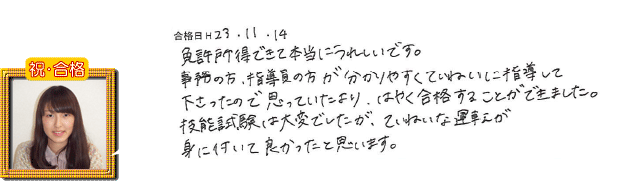 合格日H23.11.14
祝・合格
免許所得できて本当にうれしいです。
事務の方、指導員の方が分かりやすくていねいに指導して
下さったので思っていたより、はやく合格することができました。
技能試験は大変でしたが、ていねいな運転が
身に付いて良かったと思います。